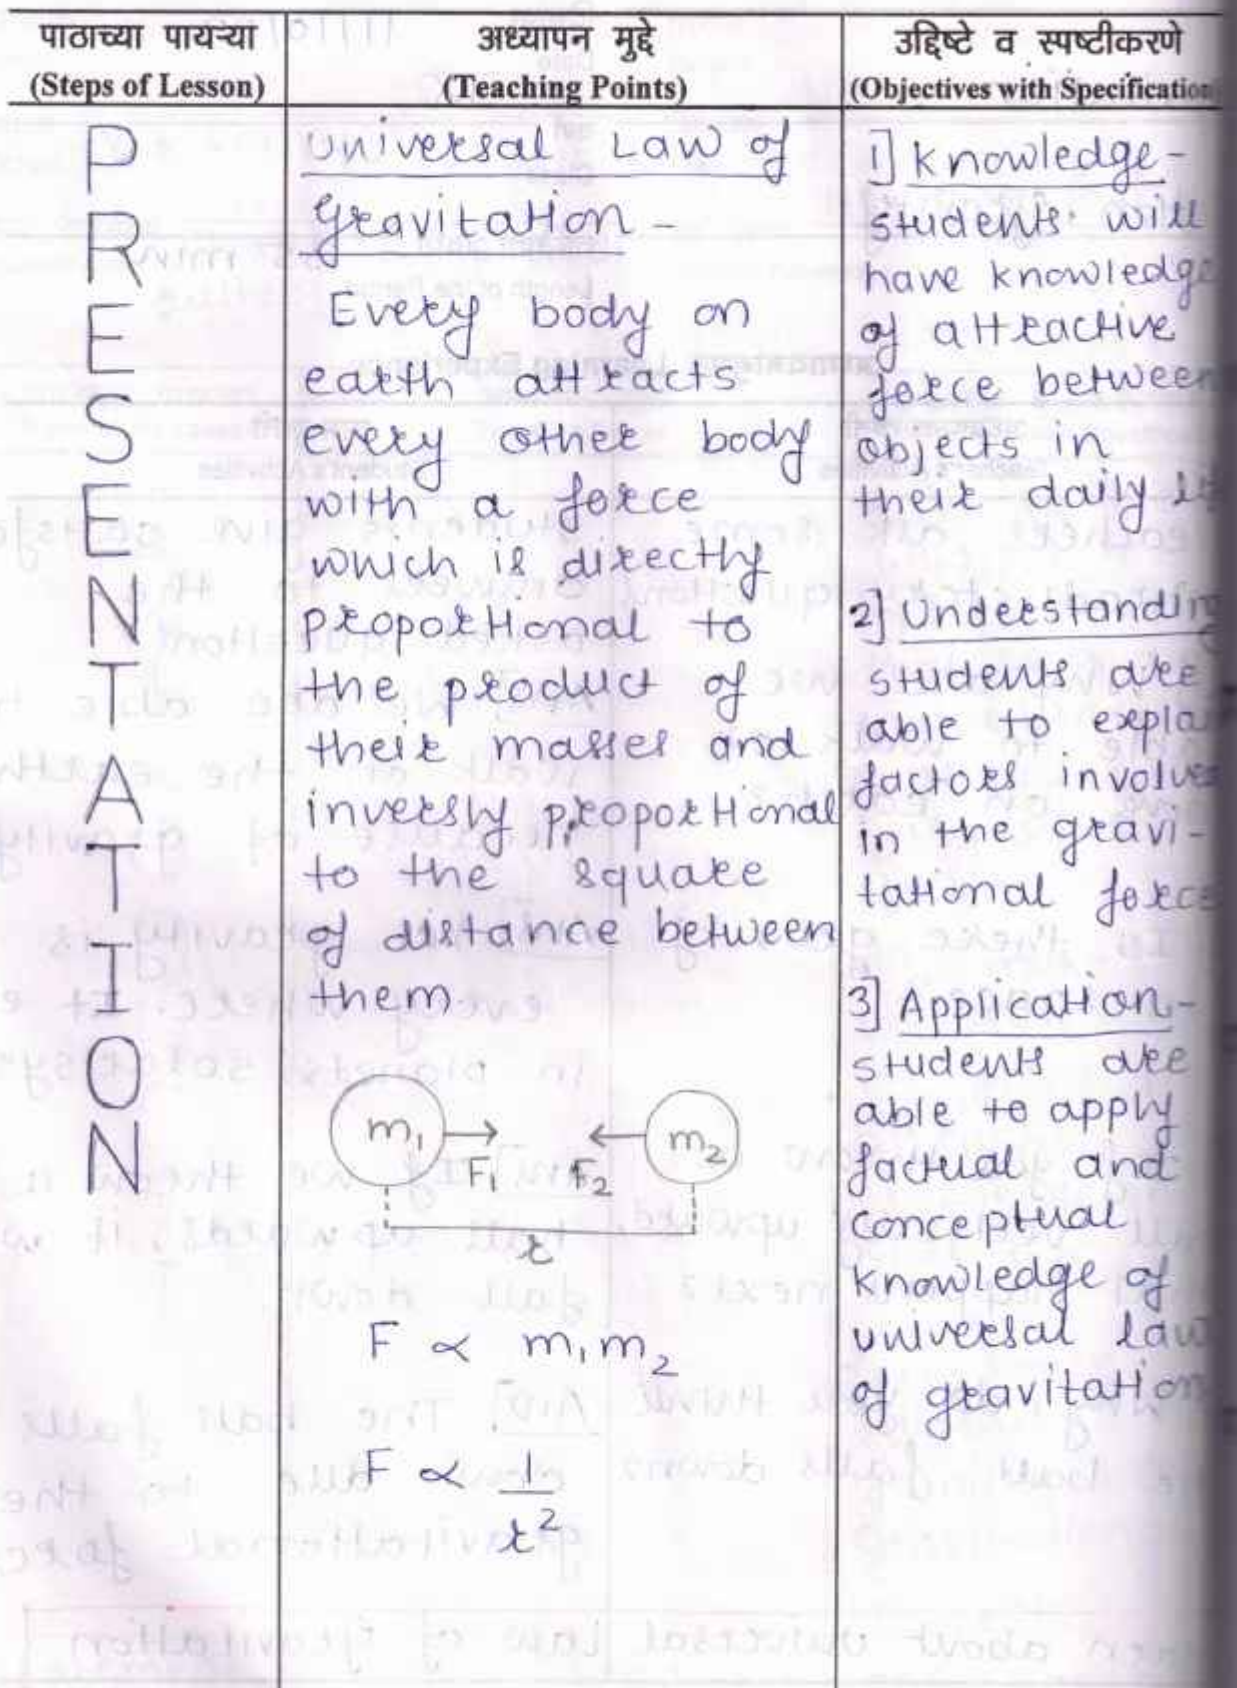 पाठाच्या पायऱ्या
(Steps of Lesson)
अध्यापन मुद्दे
(Teaching Points)
उद्दिष्टे व स्पष्टीकरणे
(Objectives with Specification
PRESENTATION
Universal Law of
gravitation -
Every body on
earth attracts
every other body
with a force
which is directly
proportional to
the product of
their masses and
inversly proportional
to the square
of distance between
them.
m₁ F₁ F₂ m₂
r
F ∝ m₁m₂
F ∝ 1/r²
1] Knowledge -
students will
have knowledge
of attractive
force between
objects in
their daily
2] Understanding
students are
able to
factors
in the gravi-
tational force
3] Application -
students are
able to apply
factual and
conceptual
knowledge of
universal law
of gravitation